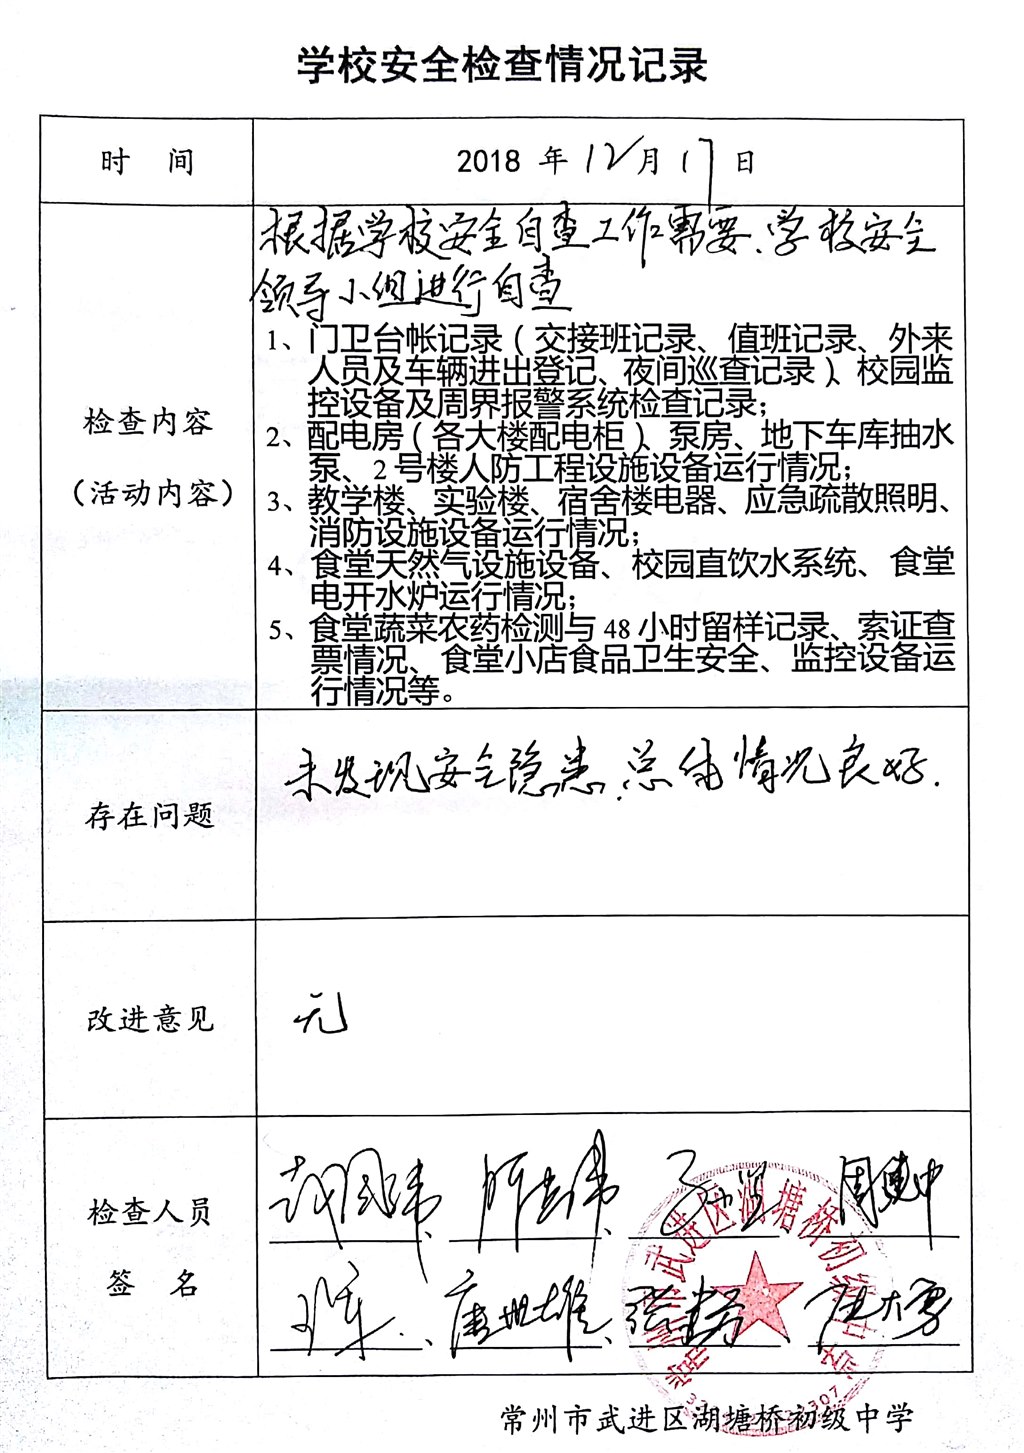 学校安全检查情况记录
时 间
2018 年 12 月 17 日
检查内容
（活动内容）
根据学校安全自查工作需要、学校安全
领导小组进行自查
1、门卫台帐记录（交接班记录、值班记录、外来
人员及车辆进出登记、夜间巡查记录）、校园监
控设备及周界报警系统检查记录；
2、配电房（各大楼配电柜）、泵房、地下车库抽水
泵、2 号楼人防工程设施设备运行情况；
3、教学楼、实验楼、宿舍楼电器、应急疏散照明、
消防设施设备运行情况；
4、食堂天然气设施设备、校园直饮水系统、食堂
电开水炉运行情况；
5、食堂蔬菜农药检测与 48 小时留样记录、索证查
票情况、食堂小店食品卫生安全、监控设备运
行情况等。
存在问题
未发现安全隐患.总体情况良好.
改进意见
无
检查人员
签 名
周建中
常州市武进区湖塘桥初级中学
常州市武进区湖塘桥初级中学